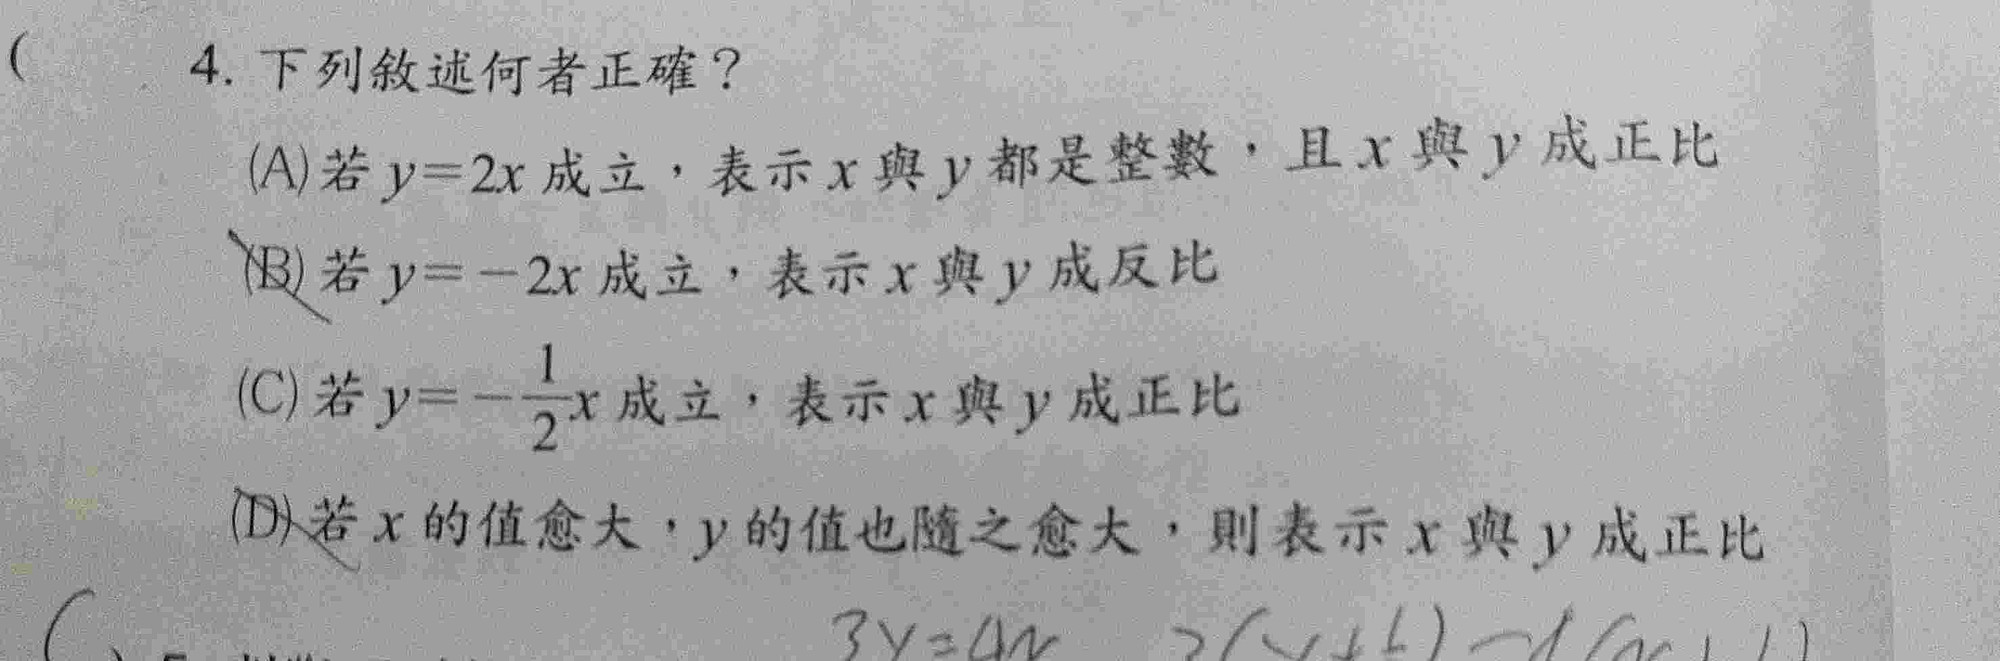 ( 4. 下列敘述何者正確？
(A)若 y=2x 成立，表示 x 與 y 都是整數，且 x 與 y 成正比
(B)若 y=-2x 成立，表示 x 與 y 成反比
(C)若 y=-1/2x 成立，表示 x 與 y 成正比
(D)若 x 的值愈大，y 的值也隨之愈大，則表示 x 與 y 成正比
( 3y=4x